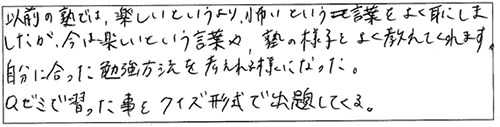 以前の塾では、楽しいというより、怖いという言葉をよく耳にしま
したが、今は楽しいという言葉や、塾の様子をよく教えてくれます。
自分に合った勉強方法を考えれる様になった。
Qゼミで習った事をクイズ形式で出題してくる。